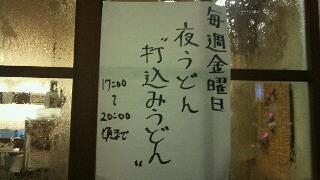 毎週金曜日
夜うどん
〝打込みうどん〟
17:00
〜
20:00
頃まで